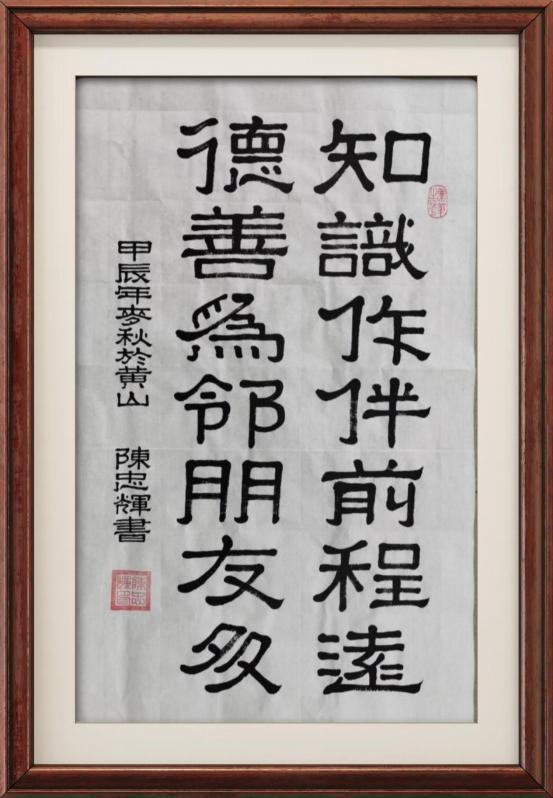 知識作伴前程遠
德善為邻朋友多
甲辰年麥秋於黄山 陳忠輝書